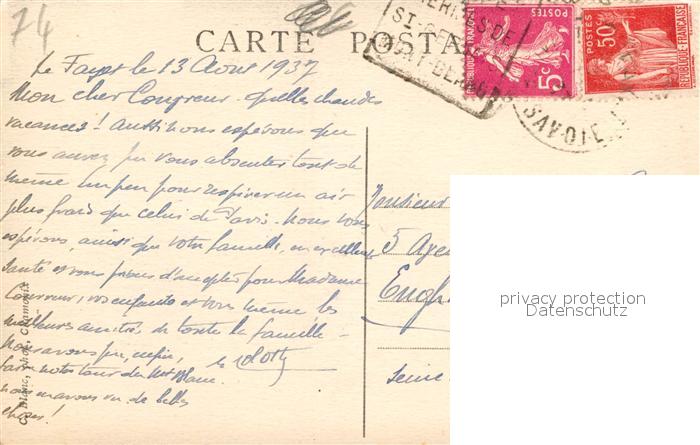 74
CARTE POSTA
ST-GERVAIS
MONT-BLANC
POSTES
5c
POSTES
50c
REPUBLIQUE FRANCAISE
SAVOIE
Le Fayet le 13 Aout 1937
Mon cher Confreur - quelles chaudes
vacances! Aussi nous espérons que
vous aurez pu vous absenter tout de
même un peu pour respirer un air
plus frais que celui de Paris. Nous vous
espérons, ainsi que votre famille, en excellente
santé et vous prions d'accepter pour Madame
vos enfants et vous même les
meilleures amitiés de toute la famille
Nous avons pu, enfin,
faire notre tour du Mt Blanc
nous avons vu de belles
choses!
Monsieur
5 Ave
Engh
Seine
C. Blanc, phot., Chamonix
privacy protection
Datenschutz